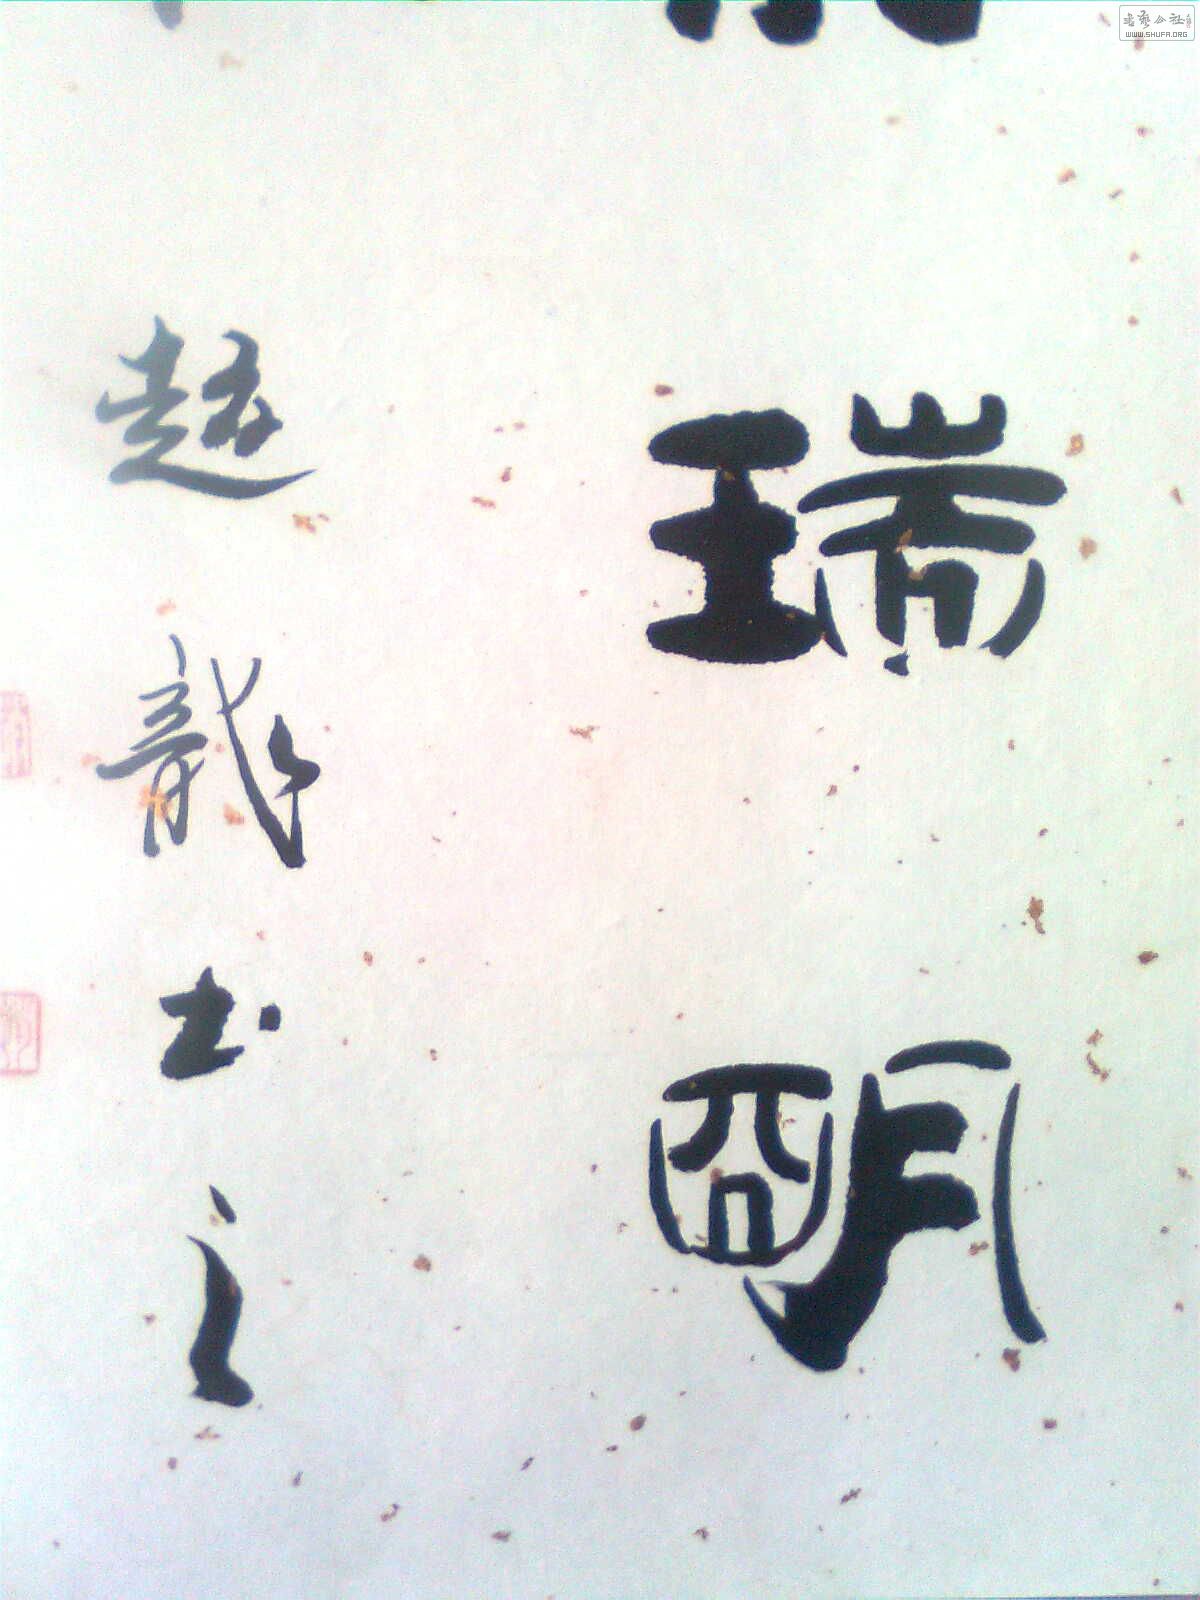 瑞明
趙龍书之
书艺公社
WWW.SHUFA.ORG